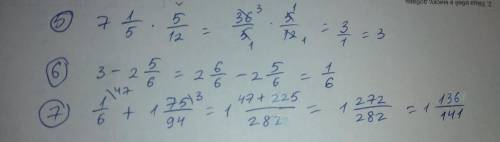 5) 7 1/5 · 5/12 = 36³/5₁ · 5¹/12₁ = 3/1 = 3
6) 3 - 2 5/6 = 2 6/6 - 2 5/6 = 1/6
7) 1/6 \47 + 1 75/94 \3 = 1 47+225/282 = 1 272/282 = 1 136/141